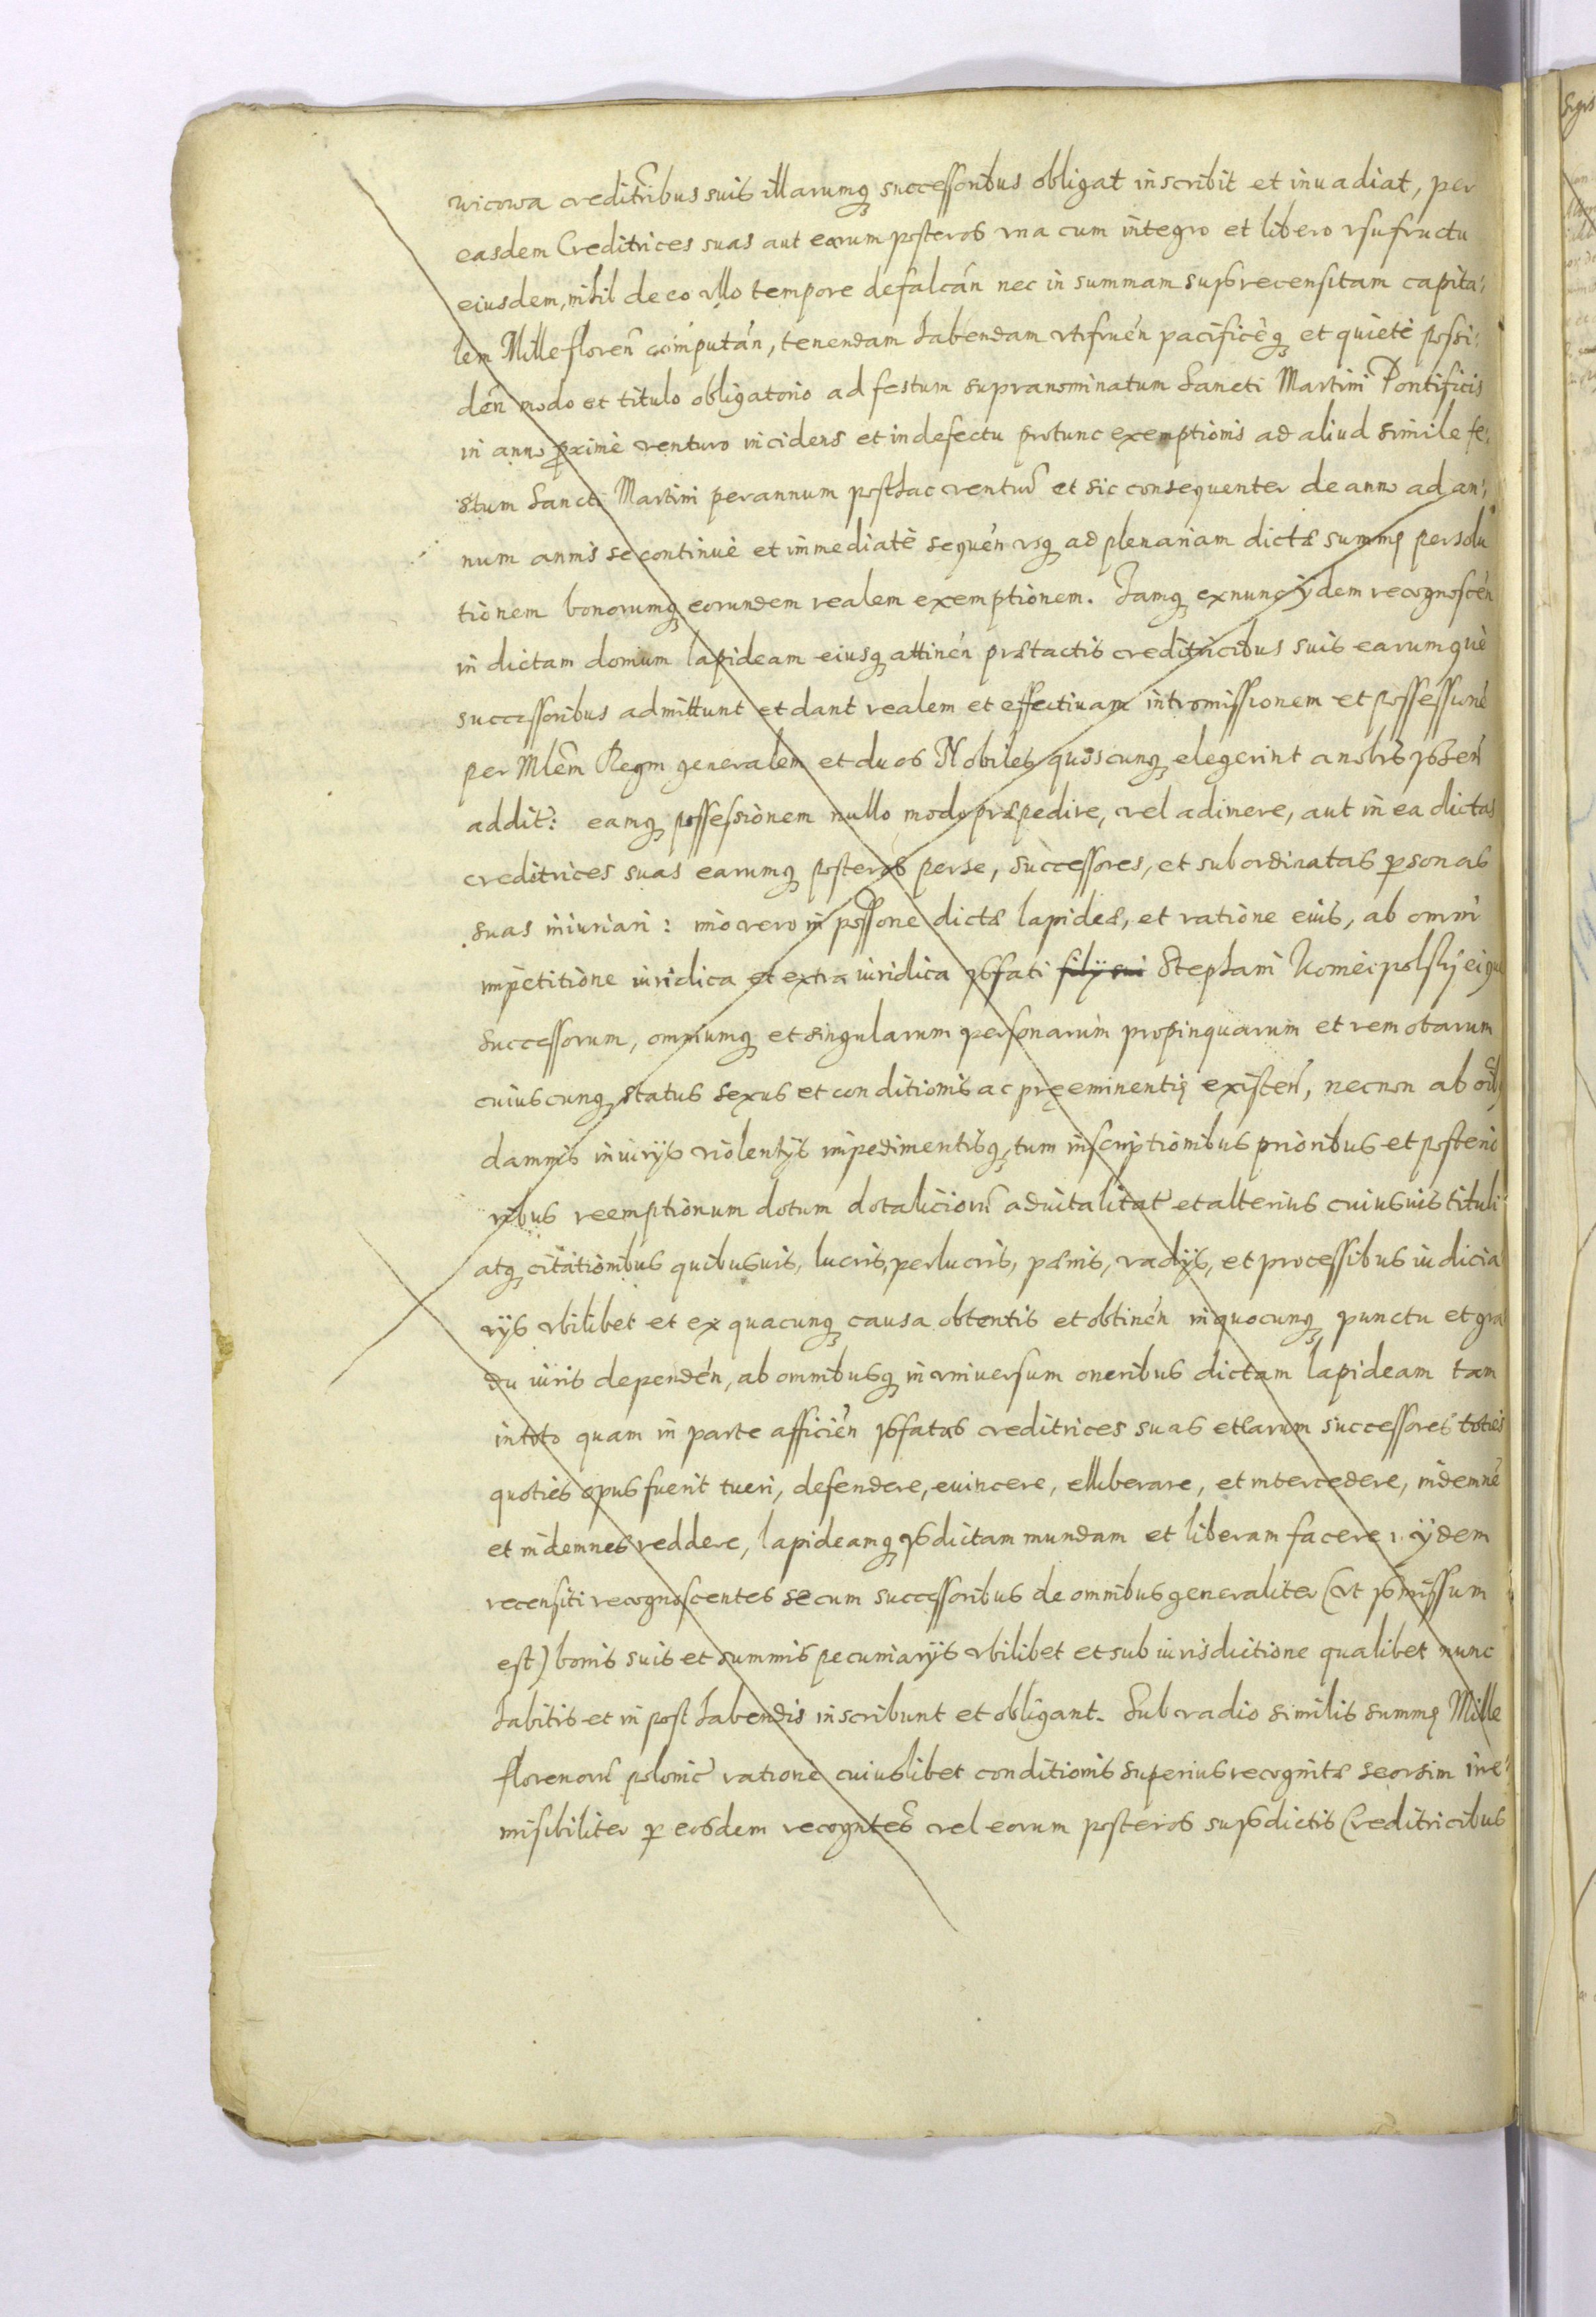 wicowa creditribus suis illarumq successoribus obligat inscribit et inuadiat, per
easdem Creditrices suas aut earum posteros vna cum integro et libero vsufructu
eiusdem, nihil de eo vllo tempore defalcán nec in summam suprecensitam capita:
lem Mille floren compután, tenendam habendam vtifruén pacificèq et quietè possi:
dén modo et titulo obligatorio ad festum supranominatum Sancti Martini Pontificis
in anno proximè venturo incidens et in defectu protunc exemptionis ad aliud simile fe:
stum Sancti Martini per annum posthac ventur et sic consequenter de anno ad an:
num annis se continuè et immediatè sequén vsq ad plenariam dictæ summę persolu
tionem bonorumq eorundem realem exemptionem. Iamq exnunc ijdem recognoscén
in dictam domum lapideam eiusq attinén prætactis creditricibus suis earumquè
successoribus admittunt et dant realem et effectiuam intromissionem et possessionẽ
per Mlem Regm generalem et duos Nobiles quoscunq elegerint a nobis
addit: eamq possessionem nullo modo præpedire, vel adimere, aut in ea dictas
creditrices suas earumq posteros per se, successores, et subordinatas personas
suas iniuriari: imo vero in possone dictæ lapideæ, et ratione eius, ab omni
impetitione iuridica et extra iuridica pfati filij sui Stephani Koniecpolskj eiqu
successorum, omniumq et singularum personarum propinquarum et remotarum
cuiuscunq status sexus et conditionis ac pręeminentię existen, necnon ab oib
damnis iniurijs violentijs impedimentisq, tum inscriptionibus prioribus et posterio
ribus reemptionum dotum dotaliciorũ aduitalitat et alterius cuiusuis tituli
atq citationibus quibusuis, lucris, perlucris, pænis, vadijs, et processibus iudicia
rijs vbilibet et ex quacunq causa obtentis et obtinén in quocunq punctu et gra
du iuris dependén, ab omnibusq in vniuersum oneribus dictam lapideam tam
in toto quam in parte afficién pfatas creditrices suas et earum successores toties
quoties opus fuerit tueri, defendere, euincere, elliberare, et intercedere, indemnẽ
et indemnes reddere, lapideamq pdictam mundam et liberam facere, ijdem
recensiti recognoscentes se cum successoribus de omnibus generaliter (vt pmissum
est) bonis suis et summis pecuniarijs vbilibet et sub iurisdictione qualibet nunc
habitis et in post habendis inscribunt et obligant. Sub vadio similis summę Mille
florenorũ polonic ratione cuiuslibet conditionis superius recognitæ seorsim irre:
misibiliter p eosdem recogntes vel eorum posteros supdictis Creditricibus